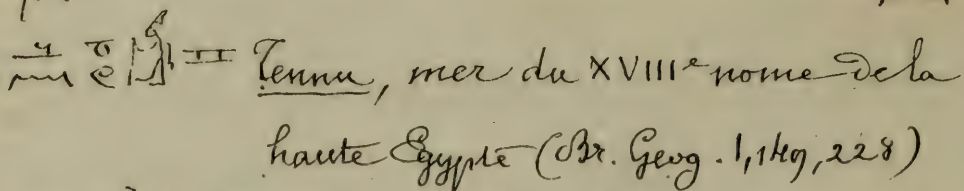 Tennu, mer du XVIIIe nome de la
haute Egypte (Br. Geog. 1, 149, 228)